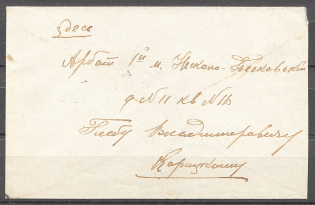 здесь
Арбат 1й м. Николо-Песковский
д №11 кв №16
Глебу Владимировичу
Корицкому